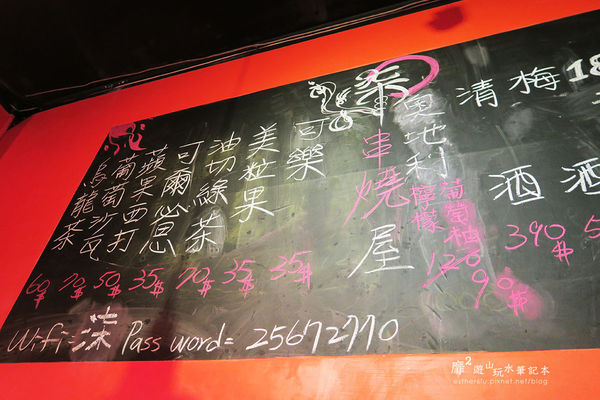 18
梅酒
清酒
390
奧地利
葡萄柚
檸檬
120
90
柒串燒屋
可樂
35
美粒果
35
油切綠茶
70
可爾
35
蘋果西打
50
葡萄沙瓦
70
烏龍茶
60
Wifi-柒 Password=25672770
靡²遊山玩水筆記本
estherlu.pixnet.net/blog